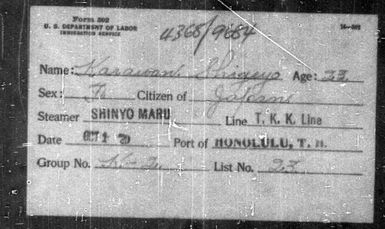 Form 502
U. S. DEPARTMENT OF LABOR
IMMIGRATION SERVICE
4365/9664
Name: Shigeyo Age: 23
Sex: F. Citizen of Japan
Steamer SHINYO MARU Line T. K. K. Line
Date OCT 1 20 Port of HONOLULU, T. H.
Group No. List No. 23